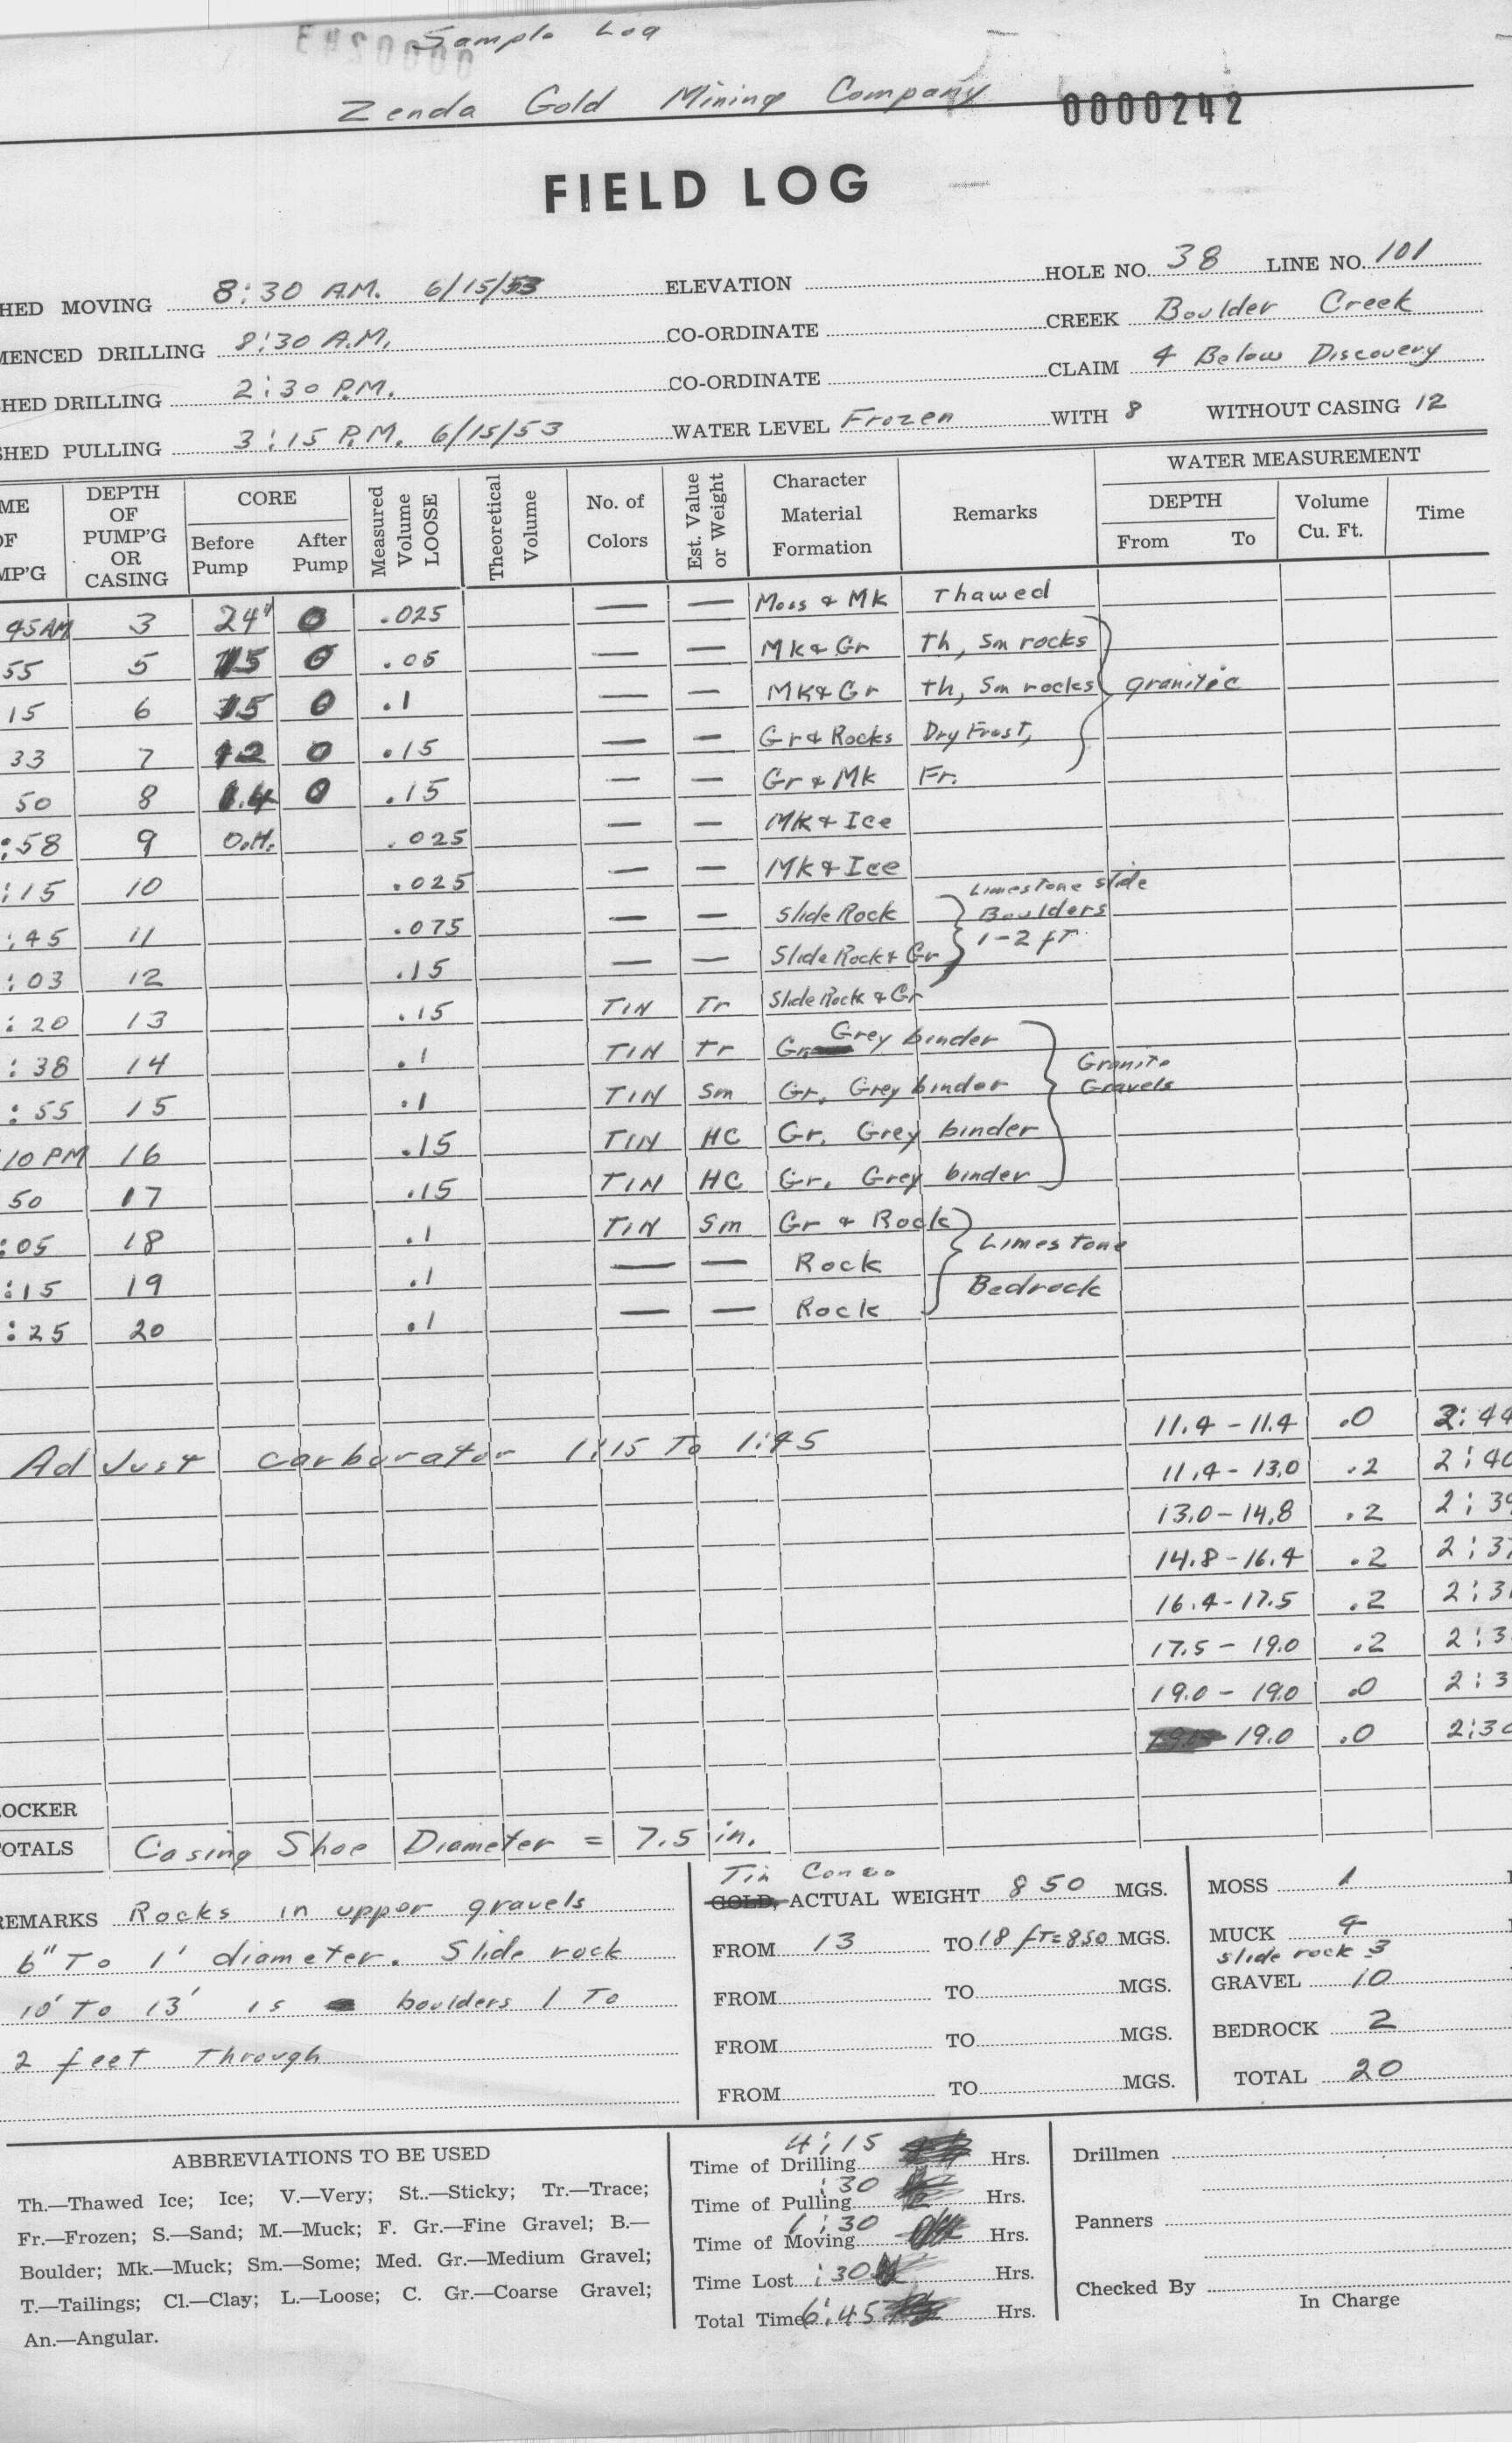 Sample Log
Zenda Gold Mining Company 0000242
FIELD LOG
HED MOVING 8:30 A.M. 6/15/53 ELEVATION HOLE NO. 38 LINE NO. 101
MENCED DRILLING 8:30 A.M. CO-ORDINATE CREEK Boulder Creek
HED DRILLING 2:30 P.M. CO-ORDINATE CLAIM 4 Below Discovery
SHED PULLING 3:15 P.M. 6/15/53 WATER LEVEL Frozen WITH 8 WITHOUT CASING 12
ME OF MP'G DEPTH OF PUMP'G OR CASING CORE Before Pump After Pump Measured Volume LOOSE Theoretical Volume No. of Colors Est. Value or Weight Character Material Formation Remarks WATER MEASUREMENT DEPTH From To Volume Cu. Ft. Time
45 AM 3 24" 0 .025 — — Moss & Mk Thawed
55 5 15 0 .05 — — Mk & Gr Th, Sm rocks
15 6 15 0 .1 — — Mk & Gr Th, Sm rocks granitic
33 7 12 0 .15 — — Gr & Rocks Dry Frost,
50 8 14 0 .15 — — Gr & Mk Fr.
:58 9 O.H. .025 — — Mk & Ice
:15 10 .025 — — Mk & Ice
:45 11 .075 — — Slide Rock Limestone slide Boulders
:03 12 .15 — — Slide Rock & Gr 1-2 ft.
:20 13 .15 TIN Tr Slide Rock & Gr
:38 14 .1 TIN Tr Gr Grey binder
:55 15 .1 TIN Sm Gr, Grey binder Granite Gravels
10 PM 16 .15 TIN HC Gr. Grey binder
50 17 .15 TIN HC Gr. Grey binder
:05 18 .1 TIN Sm Gr & Rock
:15 19 .1 — — Rock Limestone
:25 20 .1 — — Rock Bedrock
11.4 - 11.4 .0 2:44
Adjust carburator 1:15 To 1:45
11.4 - 13.0 .2 2:40
13.0 - 14.8 .2 2:39
14.8 - 16.4 .2 2:37
16.4 - 17.5 .2 2:3
17.5 - 19.0 .2 2:3
19.0 - 19.0 .0 2:3
19.0 .0 2:30
OCKER
OTALS Casing Shoe Diameter = 7.5 in.
REMARKS Rocks in upper gravels
6" To 1' diameter. Slide rock
10' To 13' is boulders 1 To
2 feet Through
Tin Conc
GOLD, ACTUAL WEIGHT 850 MGS.
FROM 13 TO 18 ft = 850 MGS.
FROM TO MGS.
FROM TO MGS.
FROM TO MGS.
MOSS 1
MUCK 4
slide rock 3
GRAVEL 10
BEDROCK 2
TOTAL 20
ABBREVIATIONS TO BE USED
Th.—Thawed Ice; Ice; V.—Very; St..—Sticky; Tr.—Trace;
Fr.—Frozen; S.—Sand; M.—Muck; F. Gr.—Fine Gravel; B.—
Boulder; Mk.—Muck; Sm.—Some; Med. Gr.—Medium Gravel;
T.—Tailings; Cl.—Clay; L.—Loose; C. Gr.—Coarse Gravel;
An.—Angular.
Time of Drilling 4:15 Hrs.
Time of Pulling :30 Hrs.
Time of Moving 1:30 Hrs.
Time Lost :30 Hrs.
Total Time 6:45 Hrs.
Drillmen
Panners
Checked By
In Charge